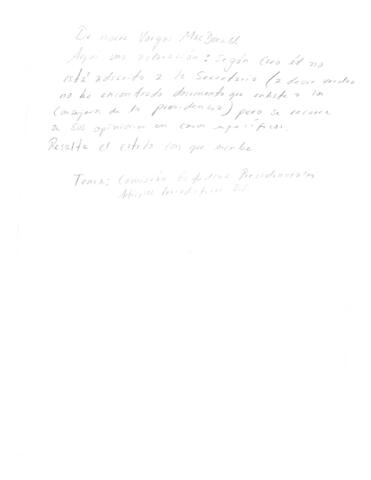 De nuevo Vargas MacDonald
Aquí una situación: Según creo él no
está adscrito a la Secretaría (a decir verdad
no he encontrado documento que enliste a los
Consejeros de la presidencia) pero se recurre
a sus opiniones en casos específicos.
Resalta el estilo con que escribe
Temas: Comisión Presidenciales